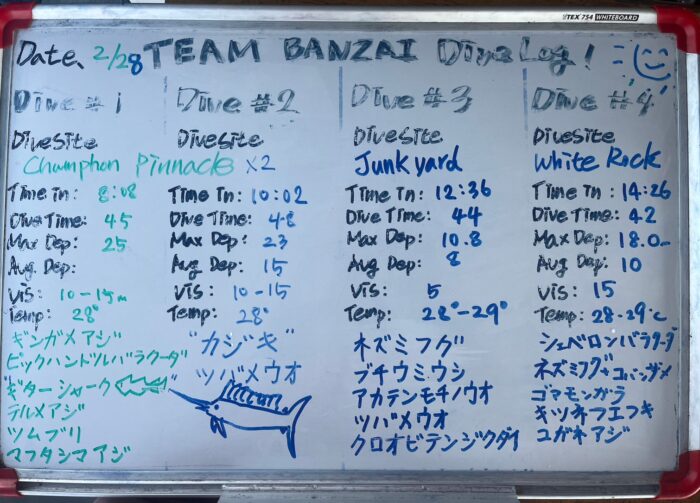 TEX 754 WHITEBOARD
Date. 2/28 TEAM BANZAI Dive Log!
Dive #1
DiveSite
Chumphon Pinnacle ×2
Time in: 8:08
Dive Time: 45
Max Dep: 25
Avg Dep:
Vis: 10-15m
Temp: 28°
ギンガメアジ
ピックハンドルバラクーダ
"ギターシャーク"
テルメアジ
ツムブリ
マブタシマアジ
Dive #2
DiveSite
Time In: 10:02
Dive Time: 48
Max Dep: 23
Avg Dep: 15
Vis: 10-15
Temp: 28°
"カジキ"
ツバメウオ
Dive #3
DiveSite
Junkyard
Time In: 12:36
Dive Time: 44
Max Dep: 10.8
Avg Dep: 8
Vis: 5
Temp: 28°-29°
ネズミフグ
ブチウミウシ
アカテンモチノウオ
ツバメウオ
クロオビテンジクダイ
Dive #4
DiveSite
White Rock
Time In: 14:26
Dive Time: 42
Max Dep: 18.0m
Avg Dep: 10
Vis: 15
Temp: 28-29°c
シェベロンバラクーダ
ネズミフグ+コバンザメ
ゴマモンガラ
キツネフエフキ
コガネアジ